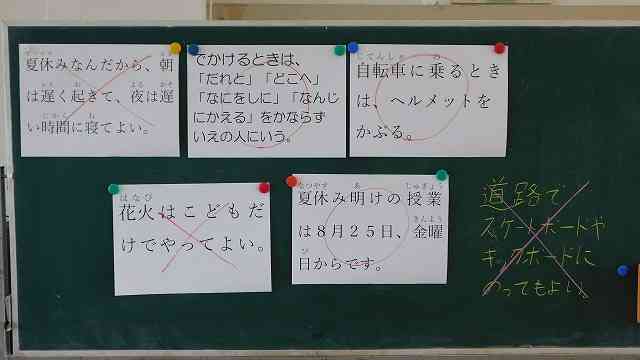 夏休みなんだから、朝
は遅く起きて、夜は遅
い時間に寝てよい。
でかけるときは、
「だれと」「どこへ」
「なにをしに」「なんじ
にかえる」をかならず
いえの人にいう。
自転車に乗るとき
は、ヘルメットを
かぶる。
花火はこどもだ
けでやってよい。
夏休み明けの授業
は８月２５日、金曜
日からです。
道路で
スケートボードや
キックボードに
のってもよい。